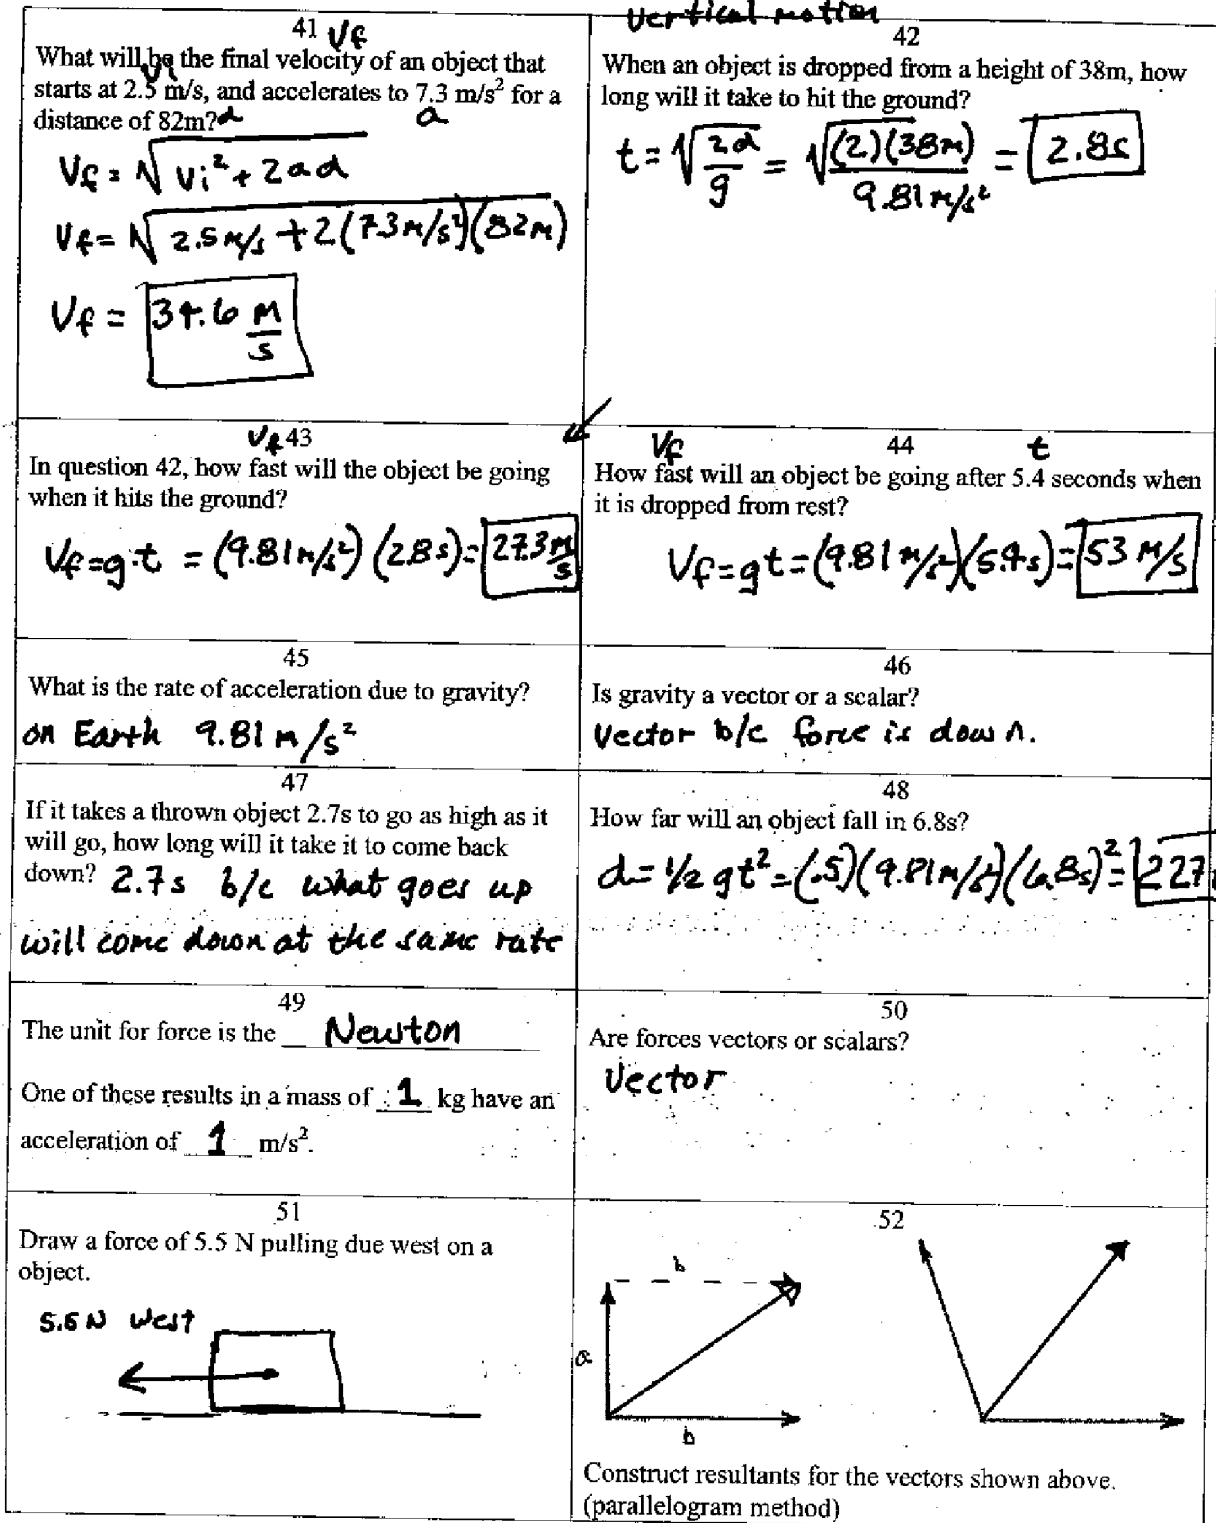 vertical motion
41 Vf
What will be the final velocity of an object that
Vi
starts at 2.5 m/s, and accelerates to 7.3 m/s² for a
distance of 82m? d a
Vf = √Vi² + 2ad
Vf = √2.5 m/s + 2(7.3 m/s²)(82m)
Vf = 34.6 m/s
42
When an object is dropped from a height of 38m, how
long will it take to hit the ground?
t = √2d/g = √(2)(38m)/9.81 m/s² = 2.8s
Vf 43
In question 42, how fast will the object be going
when it hits the ground?
Vf = g·t = (9.81 m/s²)(2.8s) = 27.3 m/s
Vf 44 t
How fast will an object be going after 5.4 seconds when
it is dropped from rest?
Vf = gt = (9.81 m/s²)(5.4s) = 53 m/s
45
What is the rate of acceleration due to gravity?
on Earth 9.81 m/s²
46
Is gravity a vector or a scalar?
Vector b/c force is down.
47
If it takes a thrown object 2.7s to go as high as it
will go, how long will it take it to come back
down? 2.7s b/c what goes up
will come down at the same rate
48
How far will an object fall in 6.8s?
d = 1/2 gt² = (.5)(9.81 m/s²)(6.8s)² = 227
49
The unit for force is the Newton
One of these results in a mass of 1 kg have an
acceleration of 1 m/s².
50
Are forces vectors or scalars?
Vector
51
Draw a force of 5.5 N pulling due west on a
object.
5.5 N West
52
b
a
b
Construct resultants for the vectors shown above.
(parallelogram method)